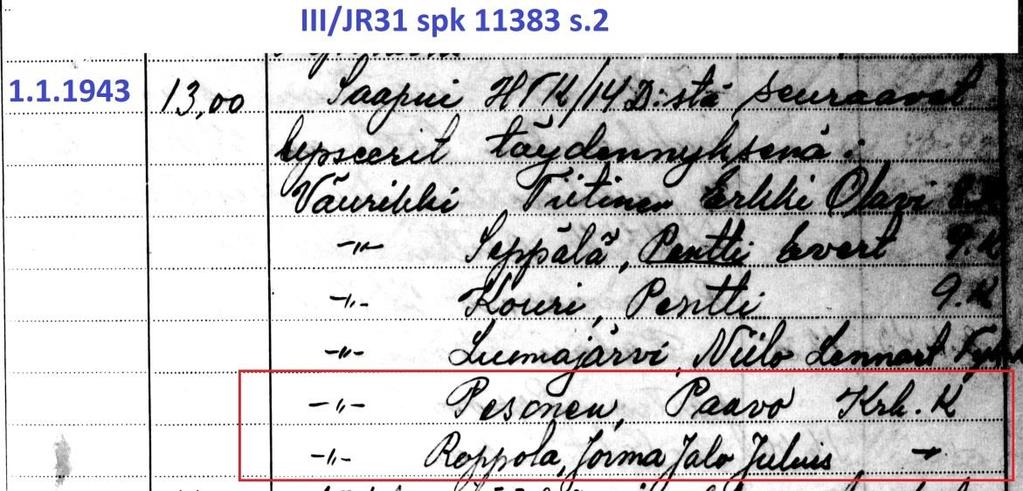 III/JR31 spk 11383 s.2
1.1.1943 13,00 Saapui HTK/14 D:stä seuraavat
upseerit täydennyksenä:
Vänrikki Tiitinen Erkki Olavi 8.K
-"- Seppälä, Pentti Evert 9.K
-"- Kouri, Pentti 9.K
-"- Luemajärvi, Niilo Lennart
-"- Pesonen, Paavo Krh.K
-"- Roppola, Jorma Jalo Julius -"-